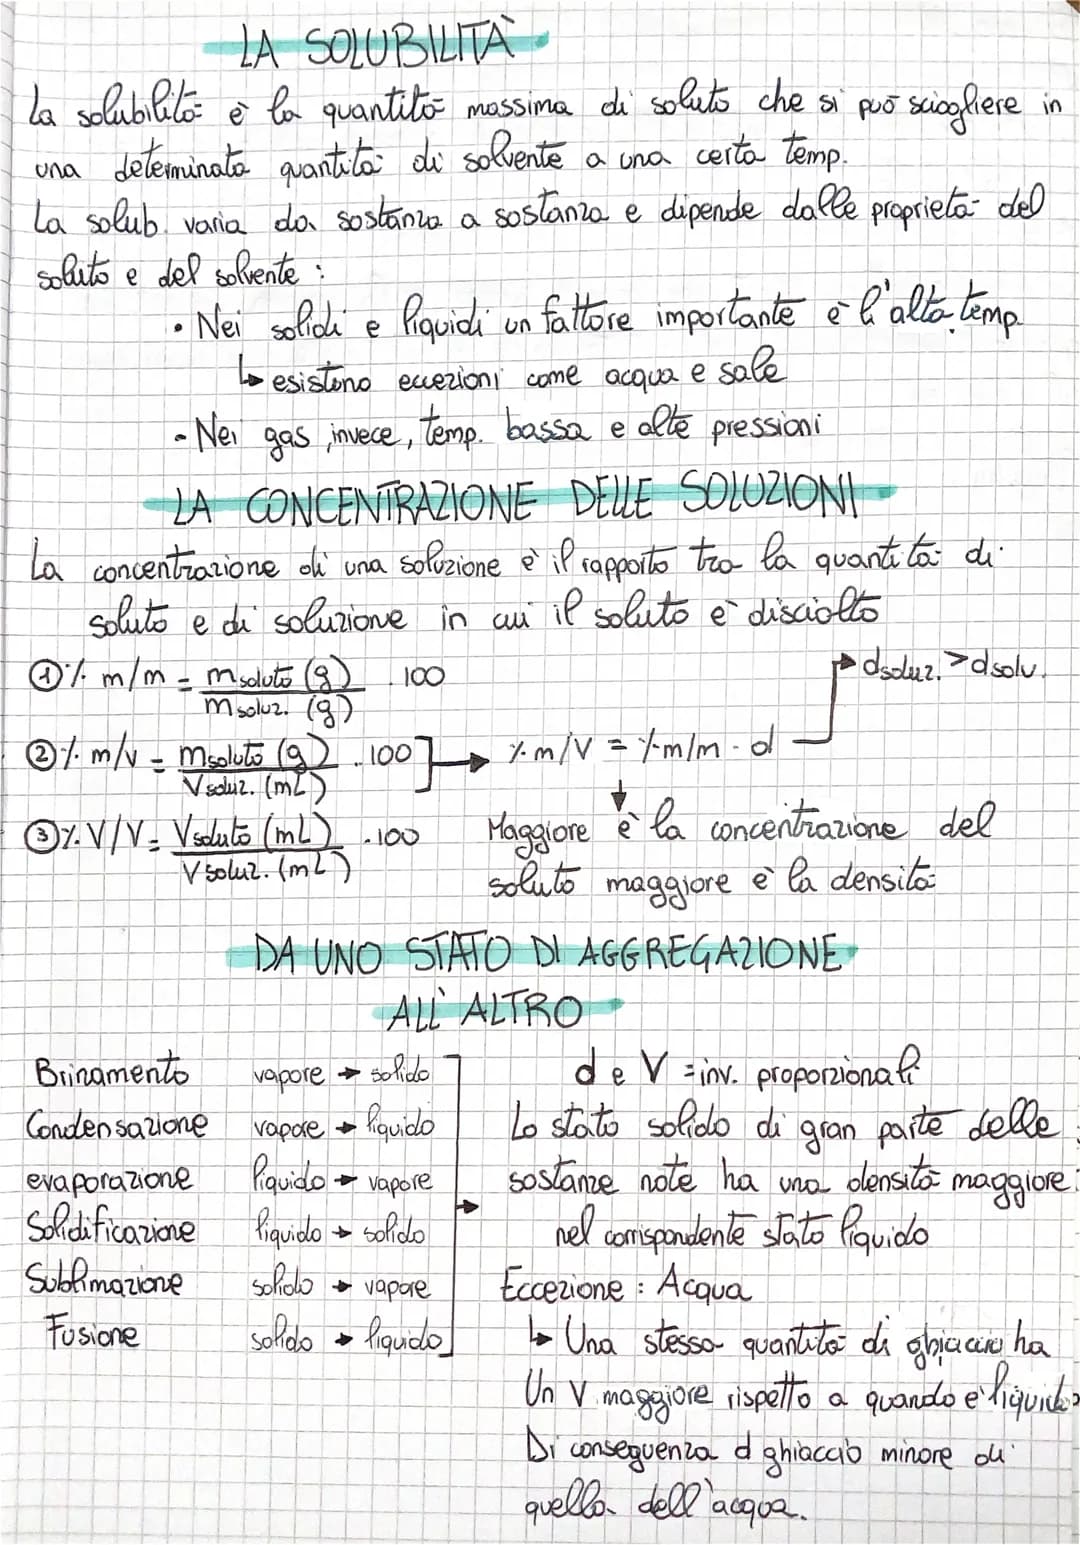 LA SOLUBILITÀ
La solubilità è la quantità massima di soluto che si può sciogliere in
una determinata quantità di solvente a una certa temp.
La solub. varia da sostanza a sostanza e dipende dalle proprietà del
soluto e del solvente :
• Nei solidi e liquidi un fattore importante è l'alta temp.
↳ esistono eccezioni come acqua e sale
- Nei gas, invece, temp. bassa e alte pressioni
LA CONCENTRAZIONE DELLE SOLUZIONI
La concentrazione di una soluzione è il rapporto tra la quantità di
soluto e di soluzione in cui il soluto è disciolto
① % m/m = m soluto (g) / m soluz. (g) · 100
→ d soluz. > d solv.
② % m/v = m soluto (g) / V soluz. (mL) · 100 ] → % m/V = % m/m · d
③ % V/V = V soluto (mL) / V soluz. (mL) · 100
Maggiore è la concentrazione del
soluto maggiore è la densità
DA UNO STATO DI AGGREGAZIONE
ALL'ALTRO
Brinamento vapore → solido
Condensazione vapore → liquido
evaporazione liquido → vapore
Solidificazione liquido → solido
Sublimazione solido → vapore
Fusione solido → liquido
d e V = inv. proporzionali
Lo stato solido di gran parte delle
sostanze note ha una densità maggiore
nel corrispondente stato liquido
Eccezione : Acqua
↳ Una stessa quantità di ghiaccio ha
Un V maggiore rispetto a quando è liquida
Di conseguenza d ghiaccio minore di
quella dell'acqua.